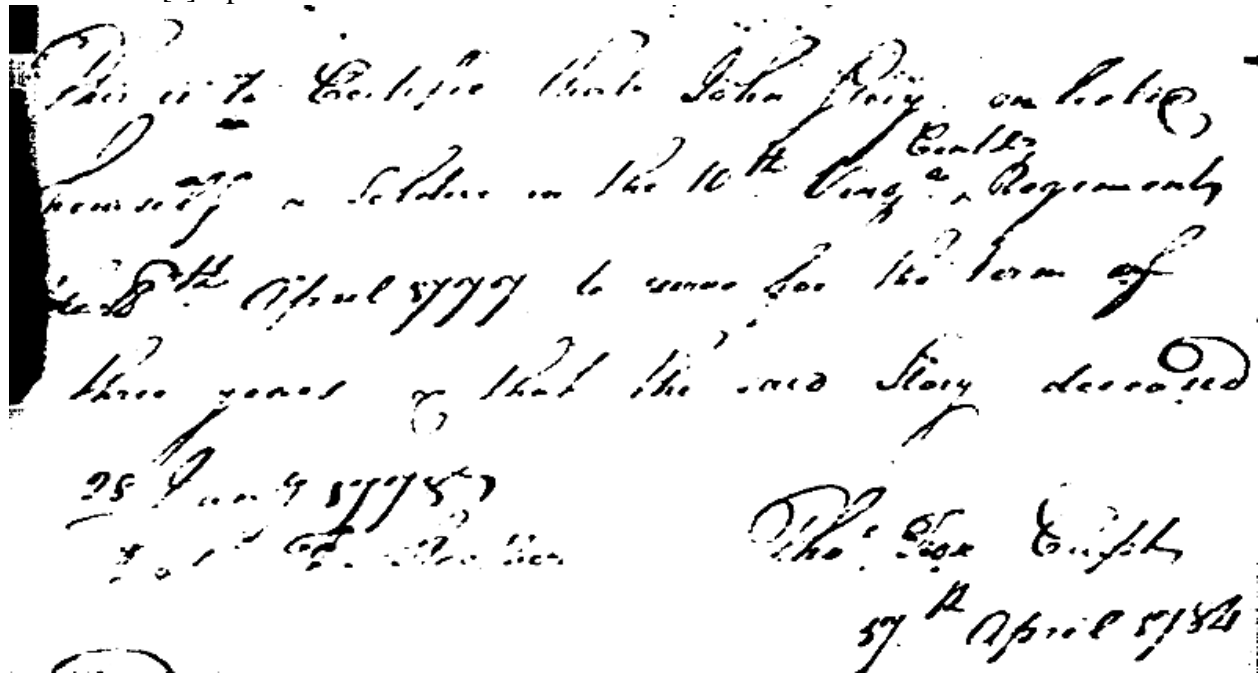 This is to Certifie that John Story enlisted
himself a Soldier in the 10th Virga Contl Regiment
the 8th April 1777 to serve for the term of
three years & that the said Story deceased
25 Jany 1778
Thos Fox Captn
17th April 1784